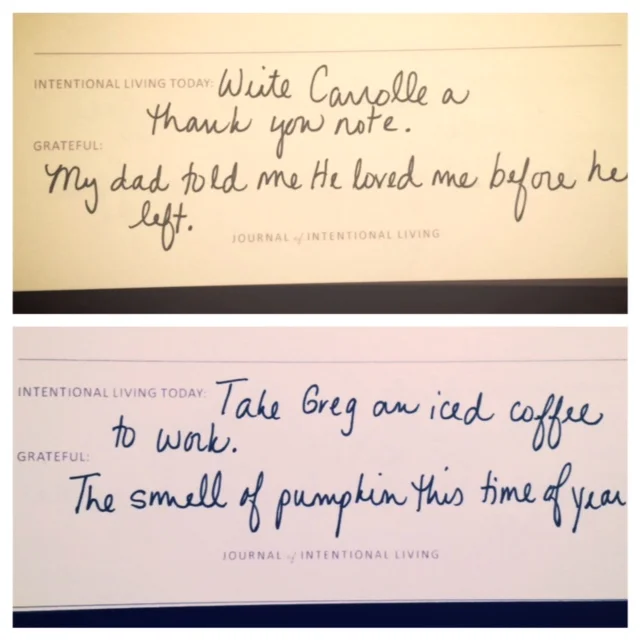 INTENTIONAL LIVING TODAY: Write Carrolle a
thank you note.
GRATEFUL:
My dad told me He loved me before he
left.
JOURNAL of INTENTIONAL LIVING
INTENTIONAL LIVING TODAY: Take Greg an iced coffee
to work.
GRATEFUL:
The smell of pumpkin this time of year
JOURNAL of INTENTIONAL LIVING